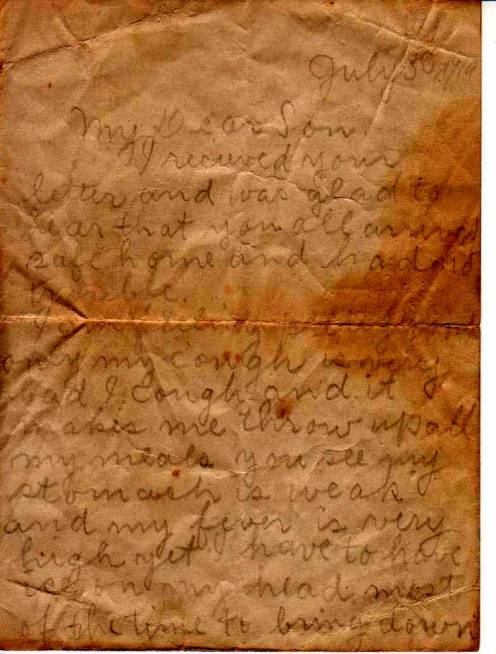 July 30, 1919
My Dear Son.
I recieved your
letter and was glad to
hear that you all arrived
safe home and had no
trouble.
I am feeling
only my cough is very
bad I cough and it
makes me throw up all
my meals you see my
stomach is weak
and my fever is very
high yet I have to have
ice on my head most
of the time to bring down